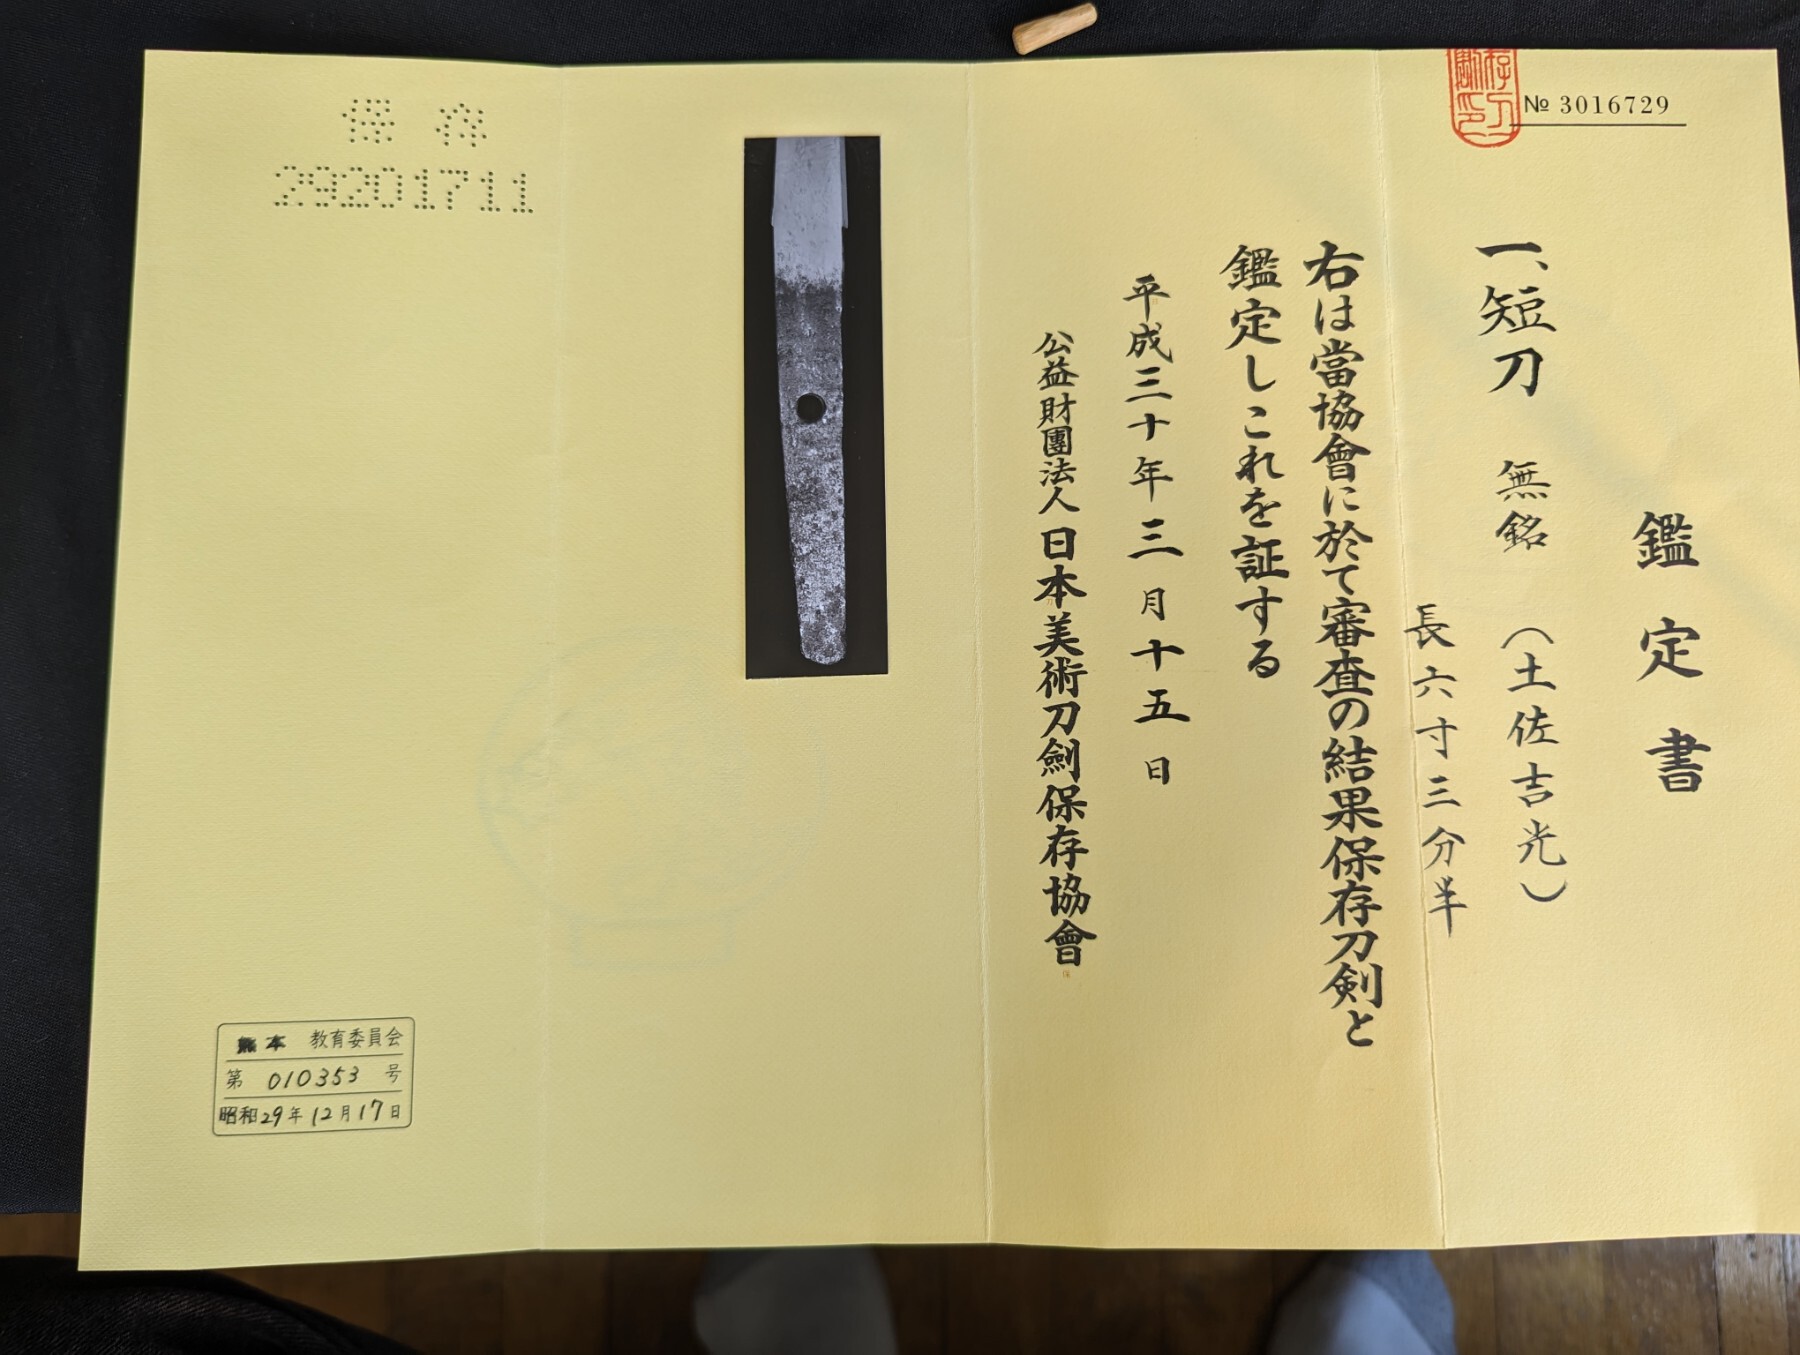 № 3016729
鑑定書
一、短刀 無銘 (土佐吉光)
長六寸三分半
右は當協會に於て審査の結果保存刀剣と
鑑定しこれを証する
平成三十年三月十五日
公益財團法人日本美術刀劍保存協會
保存
29201711
熊本 教育委員会
第 010353 号
昭和29年12月17日